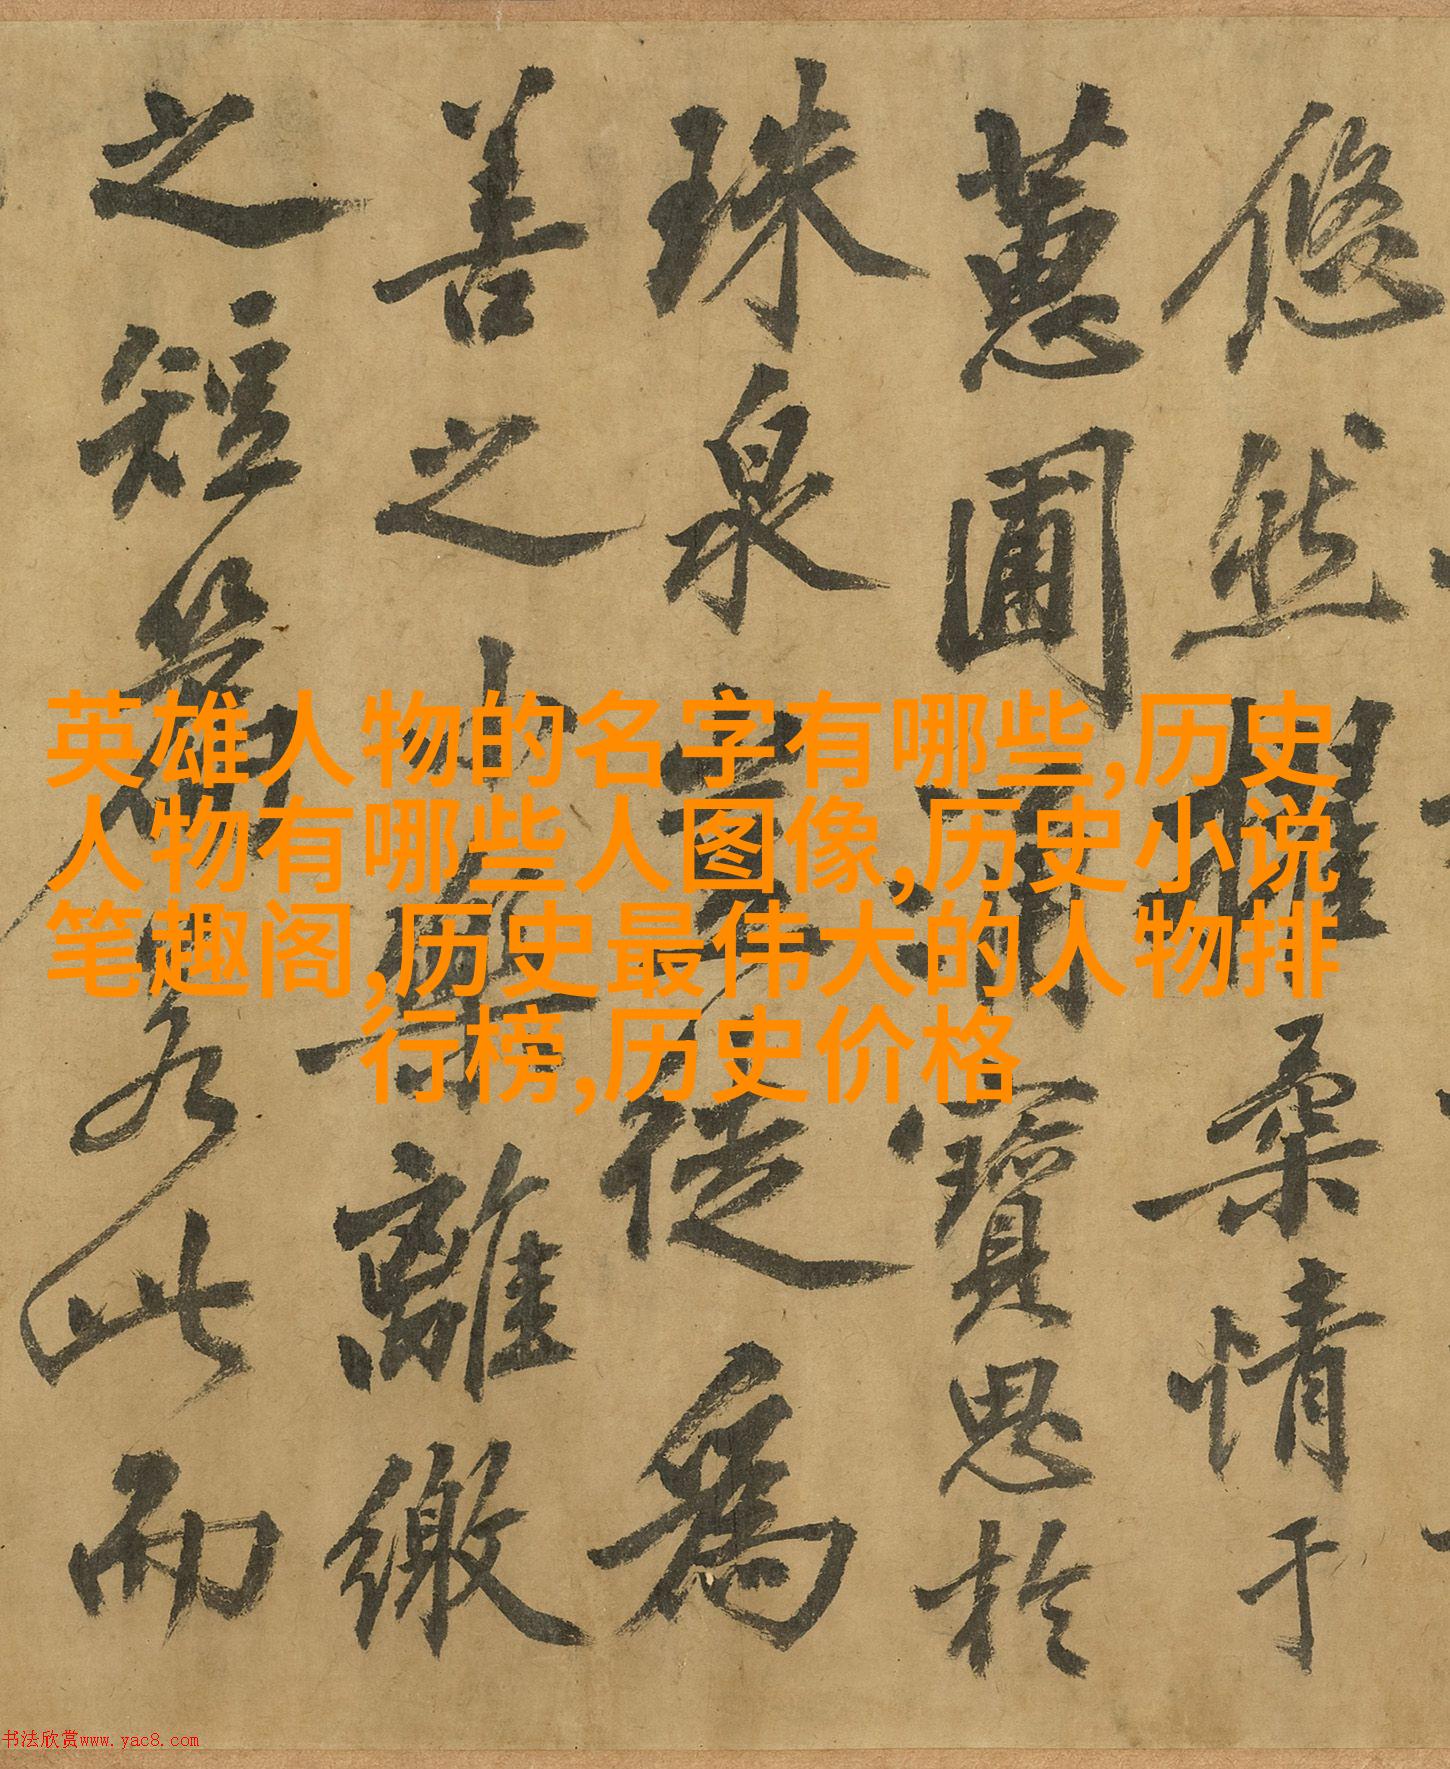 英雄人物的名字有哪些,历史
人物有哪些人图像,历史小说
笔趣阁,历史最伟大的人物排
行榜,历史价格
悠然擢柔情于
蕙圃涌寶思於
珠泉徒為
善之小離繳
之短篇若此而
书法欣赏www.yac8.com